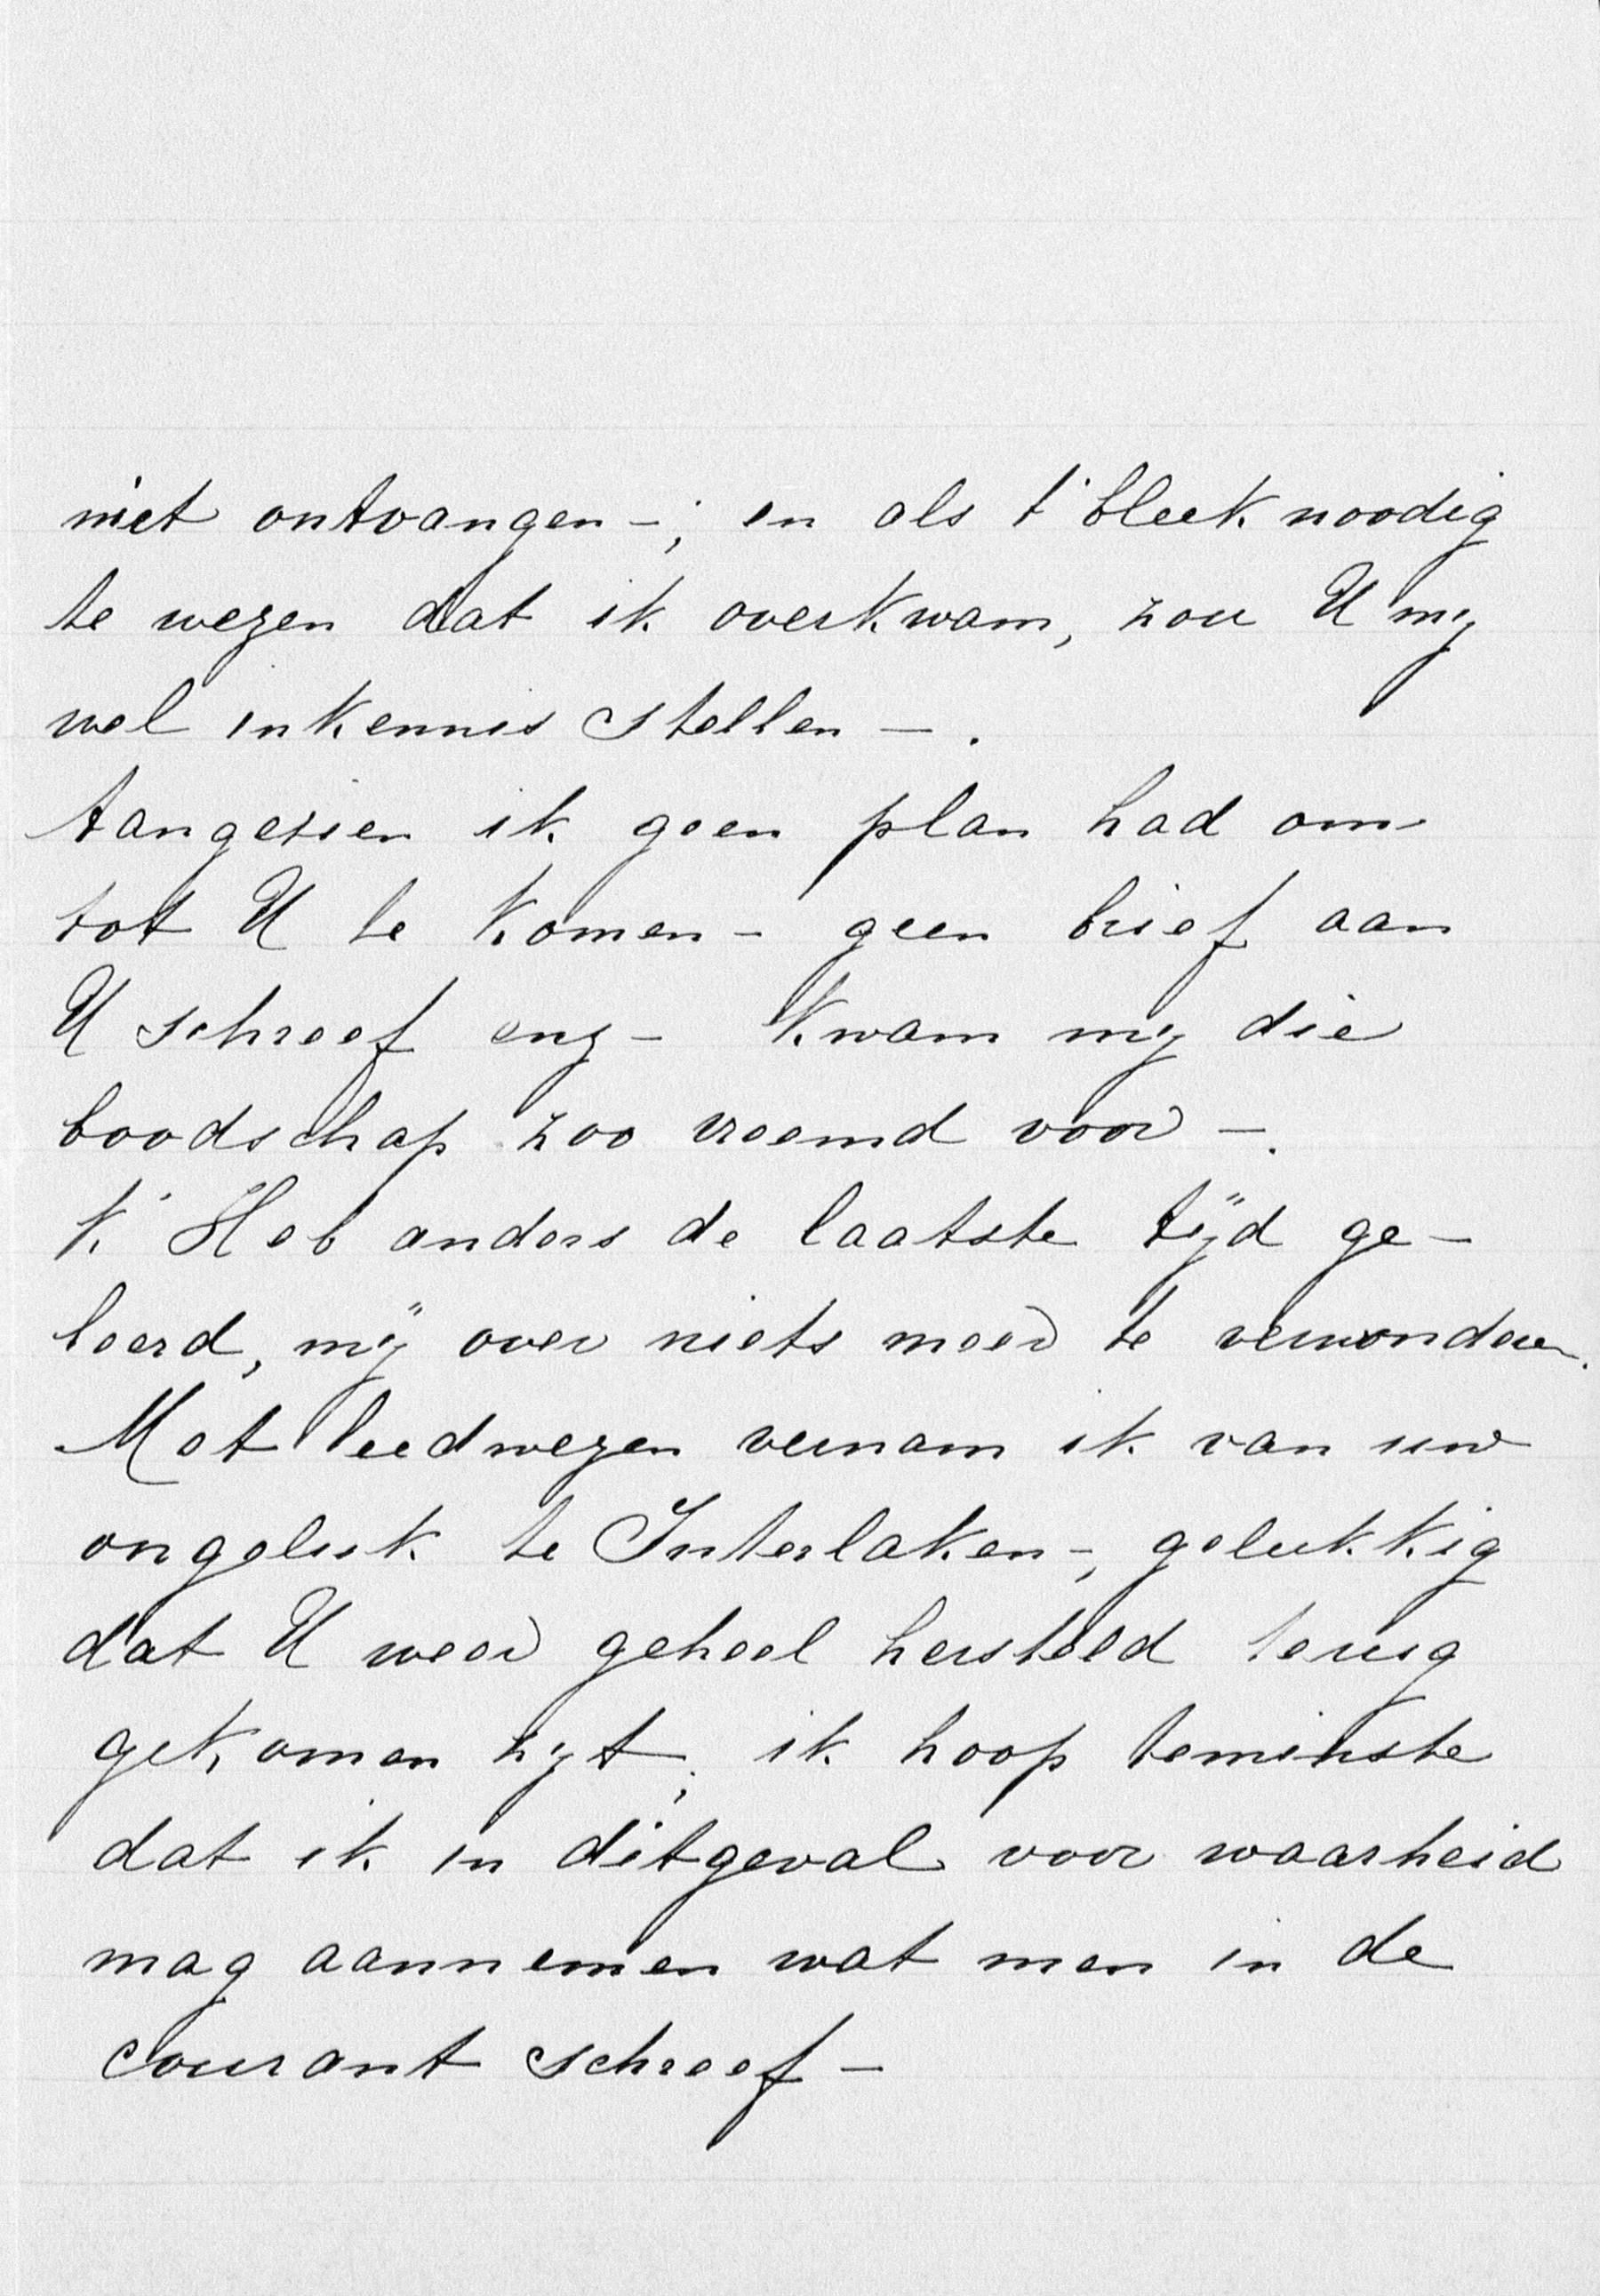 niet ontvangen -; en als t' bleek noodig
te wezen dat ik overkwam, zou U mij
wel inkennis stellen - .
Aangezien ik geen plan had om
tot U te komen - geen brief aan
U schreef enz - kwam mij die
boodschap zoo vreemd voor - .
K' Heb anders de laatste tijd ge -
leerd, mij over niets meer te verwonderen.
Met leedwezen vernam ik van uw
ongeluk te Interlaken -, gelukkig
dat U weer geheel hersteld terug
gekomen zijt; ik hoop teminste
dat ik in ditgeval voor waarheid
mag aannemen wat men in de
courant schreef -